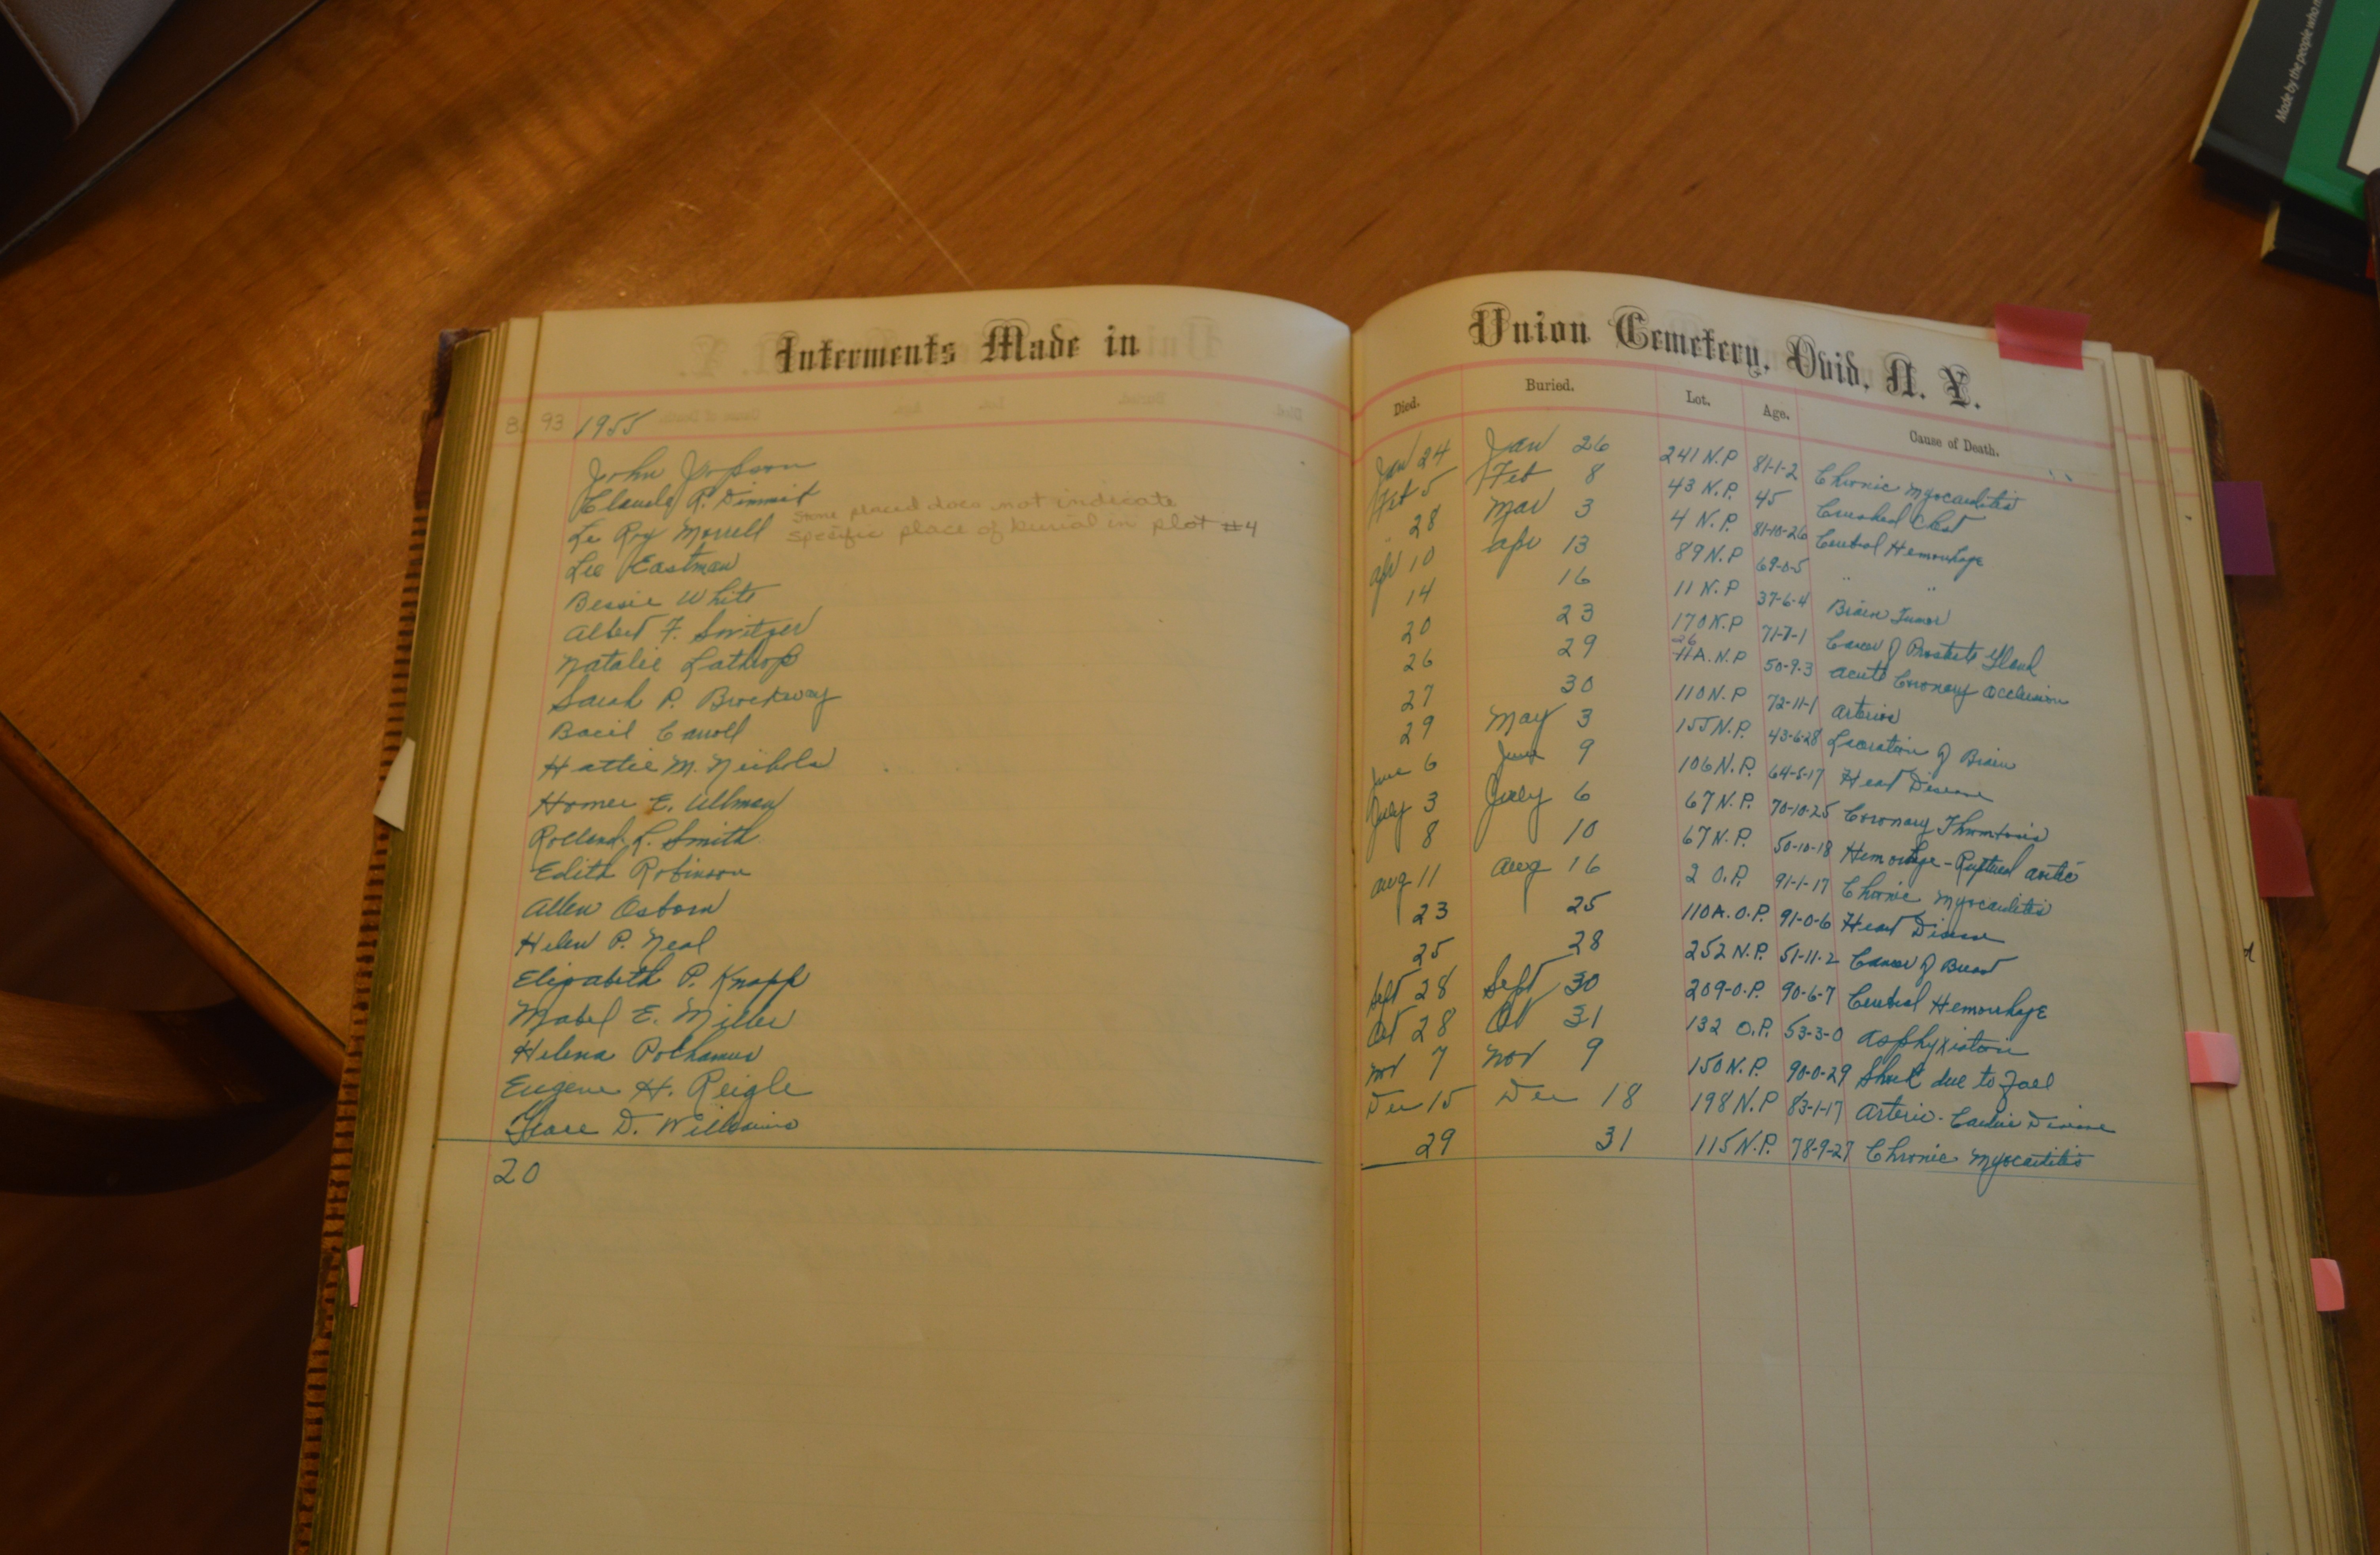 Made by the people who m
Interments Made in
8. 93 1955
John Jopson
Claude R. Dimmit
Stone placed does not indicate
Le Roy Morrell specific place of burial in plot #4
Leo Eastman
Bessie White
Albert F. Switzer
Natalie Lathrop
Sarah P. Brockway
Bacil Carroll
Hattie M. Nichols
Homer E. Ullman
Rolland L. Smith
Edith Robinson
Allen Osborn
Helen P. Neal
Elizabeth P. Knapp
Mabel E. Miller
Helena Polhamus
Eugene H. Reigle
Grace D. Williams
20
Union Cemetery, Ovid, N. Y.
Died. Buried. Lot. Age. Cause of Death.
Jan 24 Jan 26 241 N.P 81-1-2 Chronic Myocarditis
Feb 5 Feb 8 43 N.P. 45 Crushed Chest
" 28 Mar 3 4 N.P. 81-10-26 Cerebral Hemorrhage
Apr 10 Apr 13 89 N.P 69-0-5 " "
14 16 11 N.P 37-6-4 Brain Tumor
20 23 170 N.P 71-7-1 Cancer of Prostate Gland
26
26 29 11A. N.P 50-9-3 Acute Coronary Occlusion
27 30 110 N.P 72-11-1 Arterios
29 May 3 155 N.P. 43-6-28 Laceration of Brain
June 6 June 9 106 N.P. 64-5-17 Heart Disease
July 3 July 6 67 N.P. 70-10-25 Coronary Thrombosis
8 10 67 N.P. 50-10-18 Hemorhge - Ruptured
Aug 11 Aug 16 2 O.P. 91-1-17 Chronic Myocarditis
23 25 110A. O.P. 91-0-6 Heart Disease
25 28 252 N.P. 51-11-2 Cancer of Breast
Sept 28 Sept 30 209-O.P. 90-6-7 Cerebral Hemorrhage
Oct 28 Oct 31 132 O.P. 53-3-0 Asphyxiation
Nov 7 Nov 9 150 N.P. 90-0-29 Shock due to Fall
Dec 15 Dec 18 198 N.P 83-1-17 Arterio - Cardiac Disease
29 31 115 N.P. 78-9-27 Chronic Myocarditis